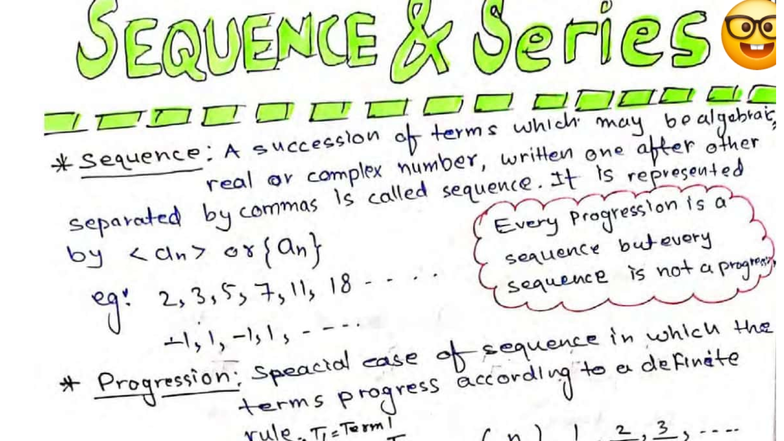 SEQUENCE & Series
* Sequence: A succession of terms which may be algebraic,
real or complex number, written one after other
separated by commas is called sequence. It is represented
by <an> or {an}
Every Progression is a
sequence but every
sequence is not a progress
eg: 2, 3, 5, 7, 11, 18 - - - -
-1, 1, -1, 1, - - - -
* Progression: Speacial case of sequence in which the
terms progress according to a definite
rule. T1 = Term 1
(n) 1, 2, 3, ----